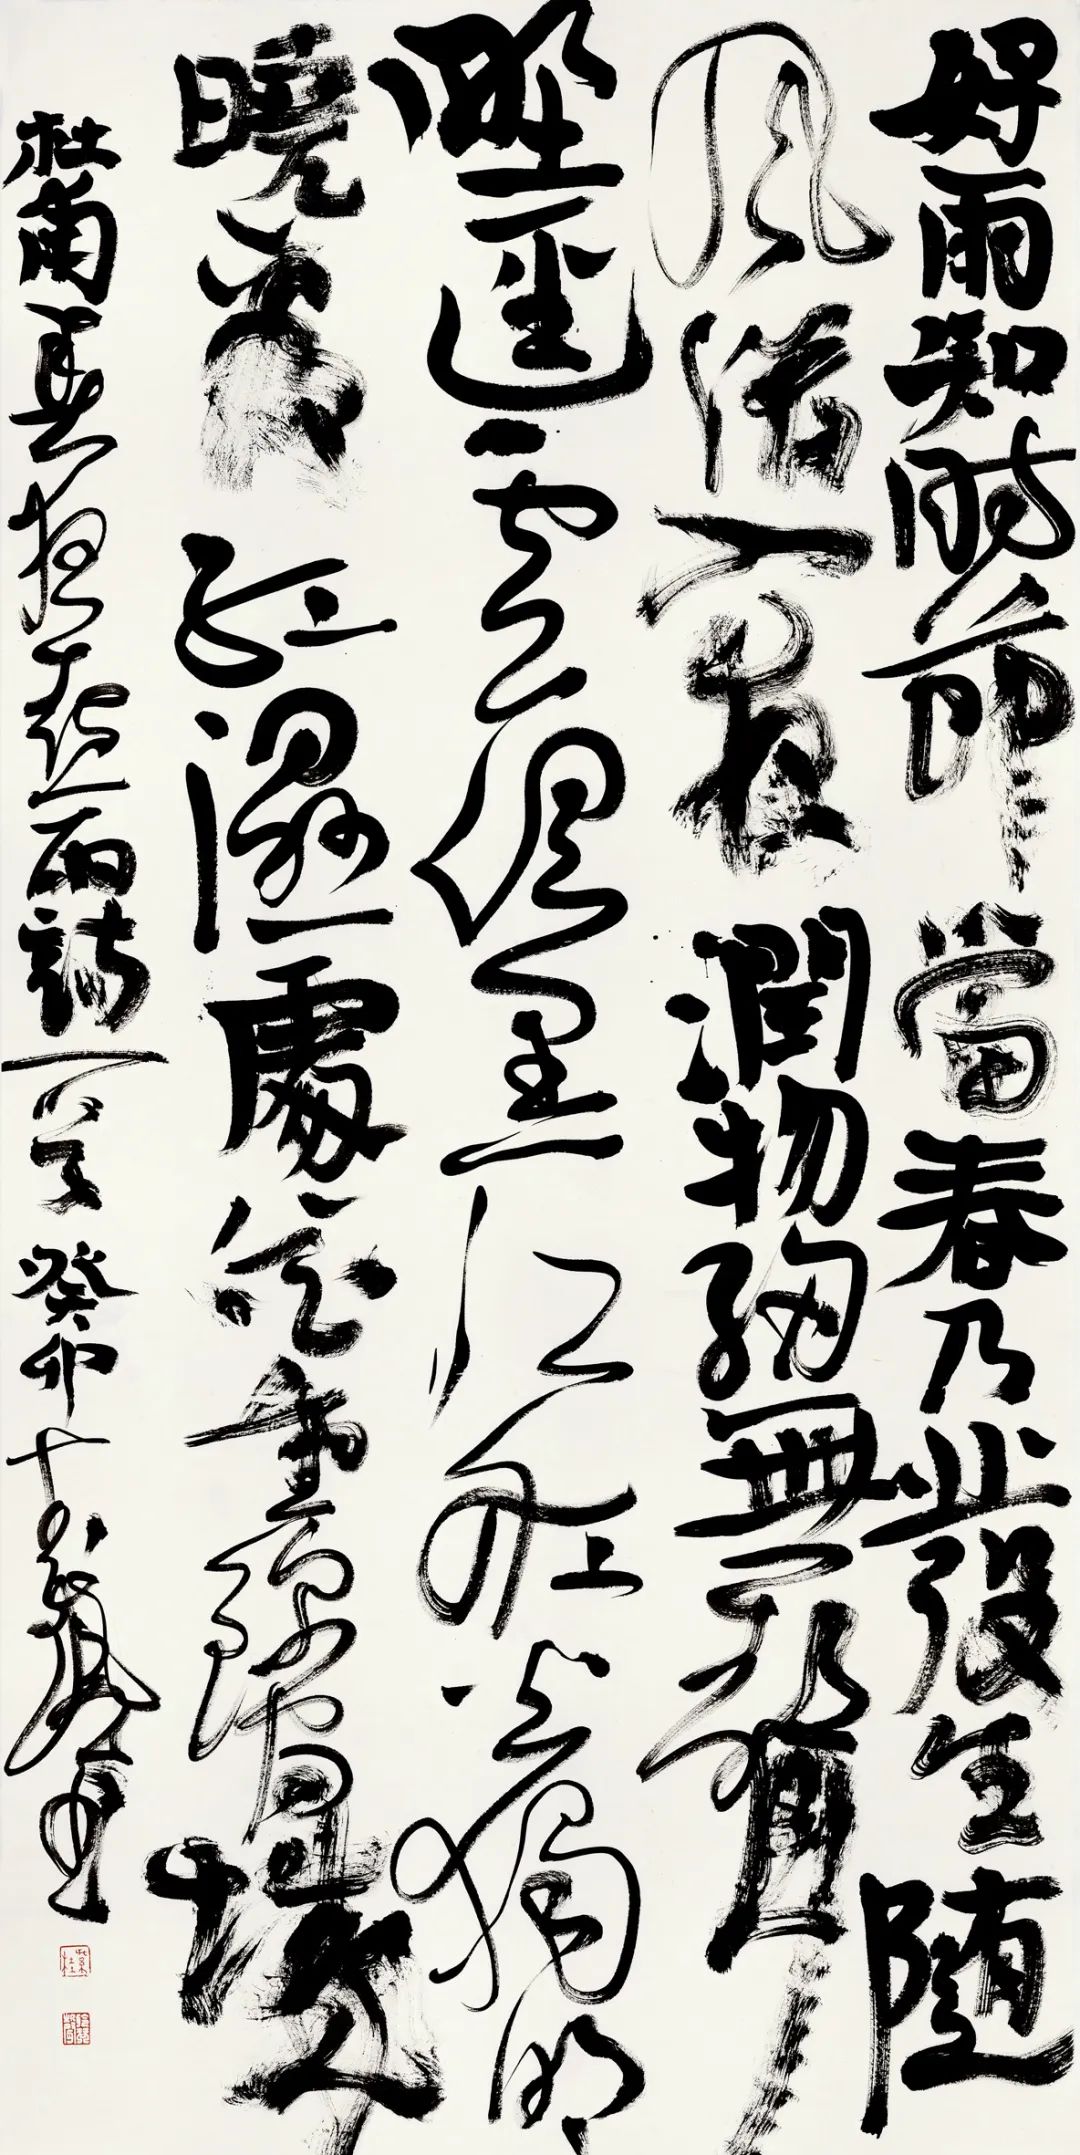 好雨知時節當春乃發生隨
風潛入夜潤物細無聲
野逕雲俱黑江船火獨明
曉看紅濕處花重錦官城
杜甫春夜喜雨詩一首癸卯十